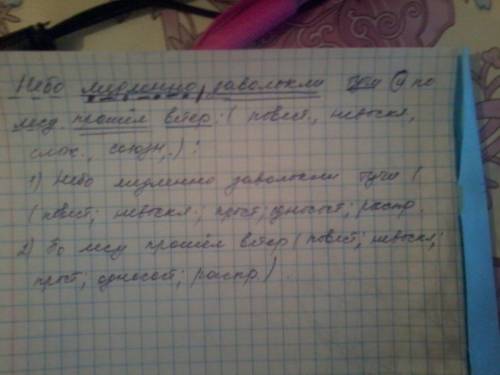 Небо медленно заволокли тучи и по
лесу прошёл ветер. ( повест., невоскл.,
слож., союзн.,) :
1) Небо медленно заволокли тучи (
( повест; невоскл; прост; односост; распр.
2) По лесу прошёл ветер ( повест; невоскл;
прост; односост; распр) .